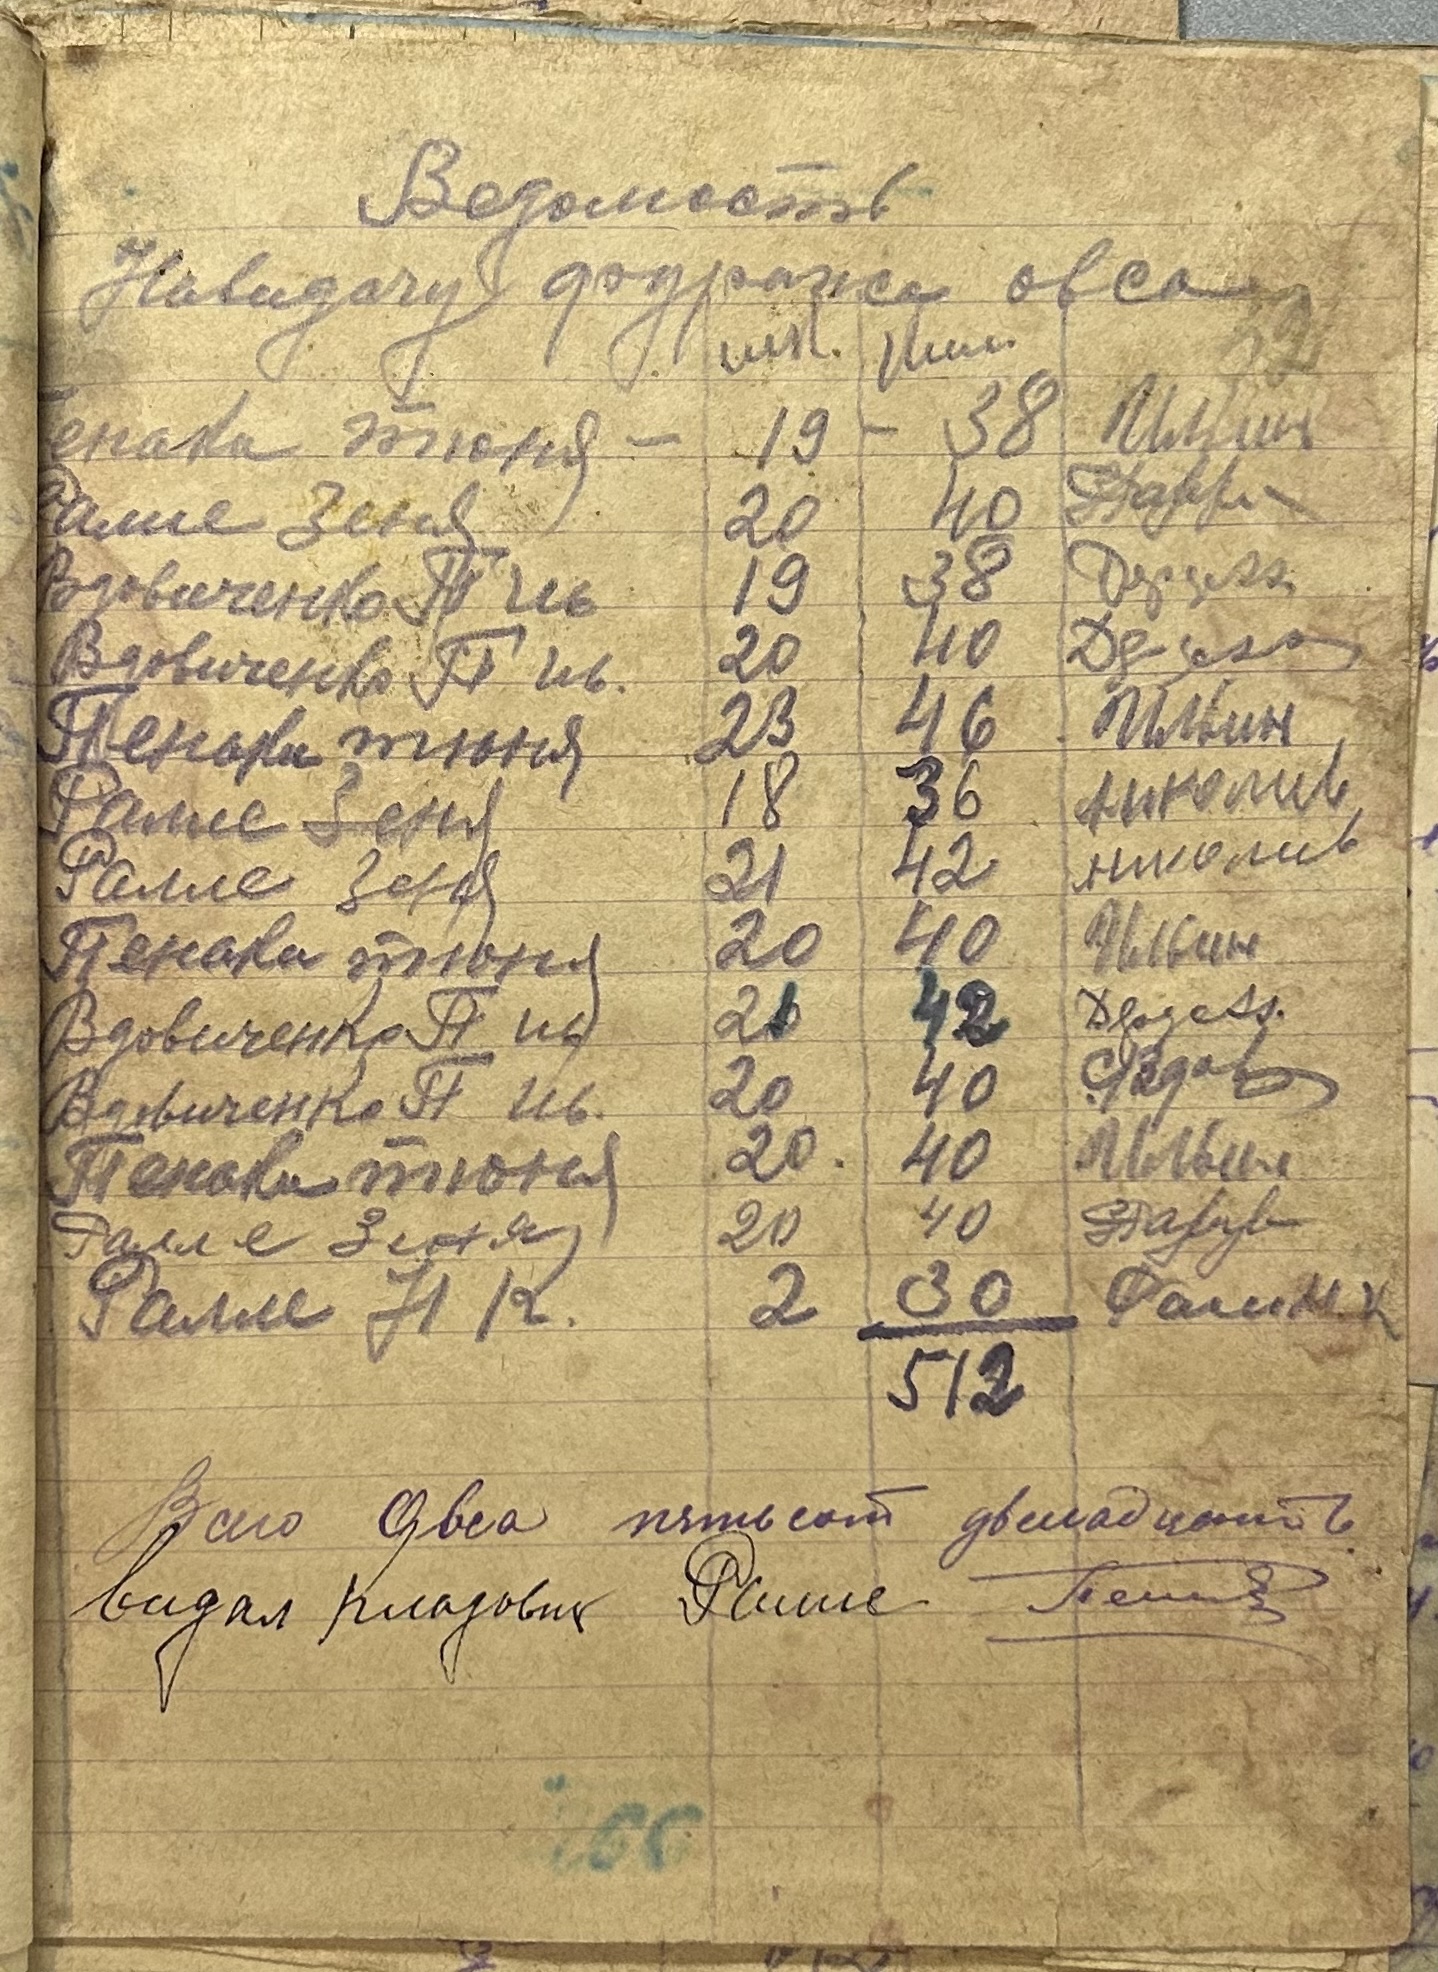 Ведомость
На видачу фуража овса
шт. Кил.
Пенака тюня - 19 - 38 Илкин
Ралле Зеня 20 40
Вдовиченко П Ив 19 38
Вдовиченко П ив. 20 40
Пенака тюня 23 46 Илкин
Ралле Зеня 18 36 николив
Ралле Зеня 21 42 николив
Пенака тюня 20 40 Илкин
Вдовиченко П ив 21 42
Вдовиченко П ив. 20 40
Пенака тюня 20. 40 Илкин
Ралле Зеня 20 40
Ралле Н К. 2 30 Ралле Н. К
512
Всего Овса пятьсот двенадцать
видал кладовик Ралле